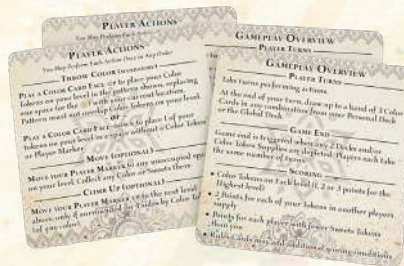 PLAYER ACTIONS
GAMEPLAY OVERVIEW
PLAYER TURNS
PLAYER ACTIONS
You May Perform Each Action Once in Any Order
THROW COLOR (MANDATORY)
PLAY A COLOR CARD FACE-UP to place your Color
Tokens on your level in the pattern shown, replacing
one space for the with your current location.
Pattern must not overlap Color Tokens on your level.
OR
PLAY A COLOR CARD FACE-DOWN to place 1 of your
Tokens on your level in a space without a Color Token
or Player Marker.
MOVE (OPTIONAL)
MOVE YOUR PLAYER MARKER to any unoccupied space
on your level. Collect any Color or Sweets there.
CLIMB UP (OPTIONAL)
MOVE YOUR PLAYER MARKER up to the next level
above, only if surrounded on sides by Color
(of any color)
GAMEPLAY OVERVIEW
PLAYER TURNS
Take turns performing actions.
At the end of your turn, draw up to a hand of 3 Color
Cards in any combination from your Personal Deck
or the Global Deck.
GAME END
Game end is triggered when any 2 Decks and/or
Color Token Supplies are depleted. Players each take
the same number of turns.
SCORING
• Color Tokens on Each level (1, 2 or 3 points for the
Highest level)
• 2 Points for each of your Tokens in another players
supply
• Points for each player with fewer Sweets Tokens
than you
• Rules Cards may add additional scoring conditions